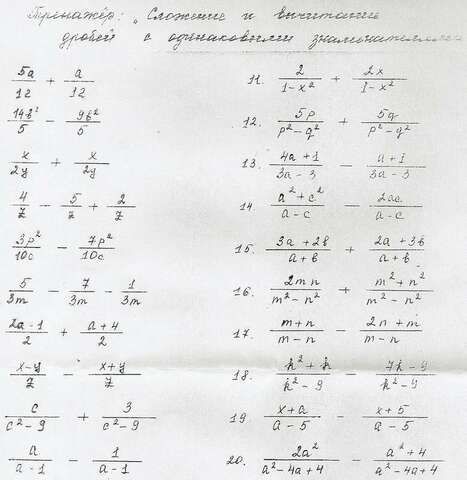 Тренажёр: „Сложение и вычитание
дробей с одинаковыми знаменателями
5a/12 + a/12
14b²/5 − 9b²/5
x/2y + x/2y
4/z − 5/z + 2/z
3p²/10c − 7p²/10c
5/3m − 7/3m − 1/3m
(2a−1)/2 + (a+4)/2
(x−y)/z − (x+y)/z
c/(c²−9) + 3/(c²−9)
a/(a−1) − 1/(a−1)
11. 2/(1−x²) + 2x/(1−x²)
12. 5p/(p²−q²) + 5q/(p²−q²)
13. (4a+1)/(3a−3) − (a+1)/(3a−3)
14. (a²+c²)/(a−c) − 2ac/(a−c)
15. (3a+2b)/(a+b) + (2a+3b)/(a+b)
16. 2mn/(m²−n²) + (m²+n²)/(m²−n²)
17. (m+n)/(m−n) − (2n+m)/(m−n)
18. (k²+k)/(k²−9) − (7k−9)/(k²−9)
19 (x+a)/(a−5) − (x+5)/(a−5)
20. 2a²/(a²−4a+4) − (a²+4)/(a²−4a+4)